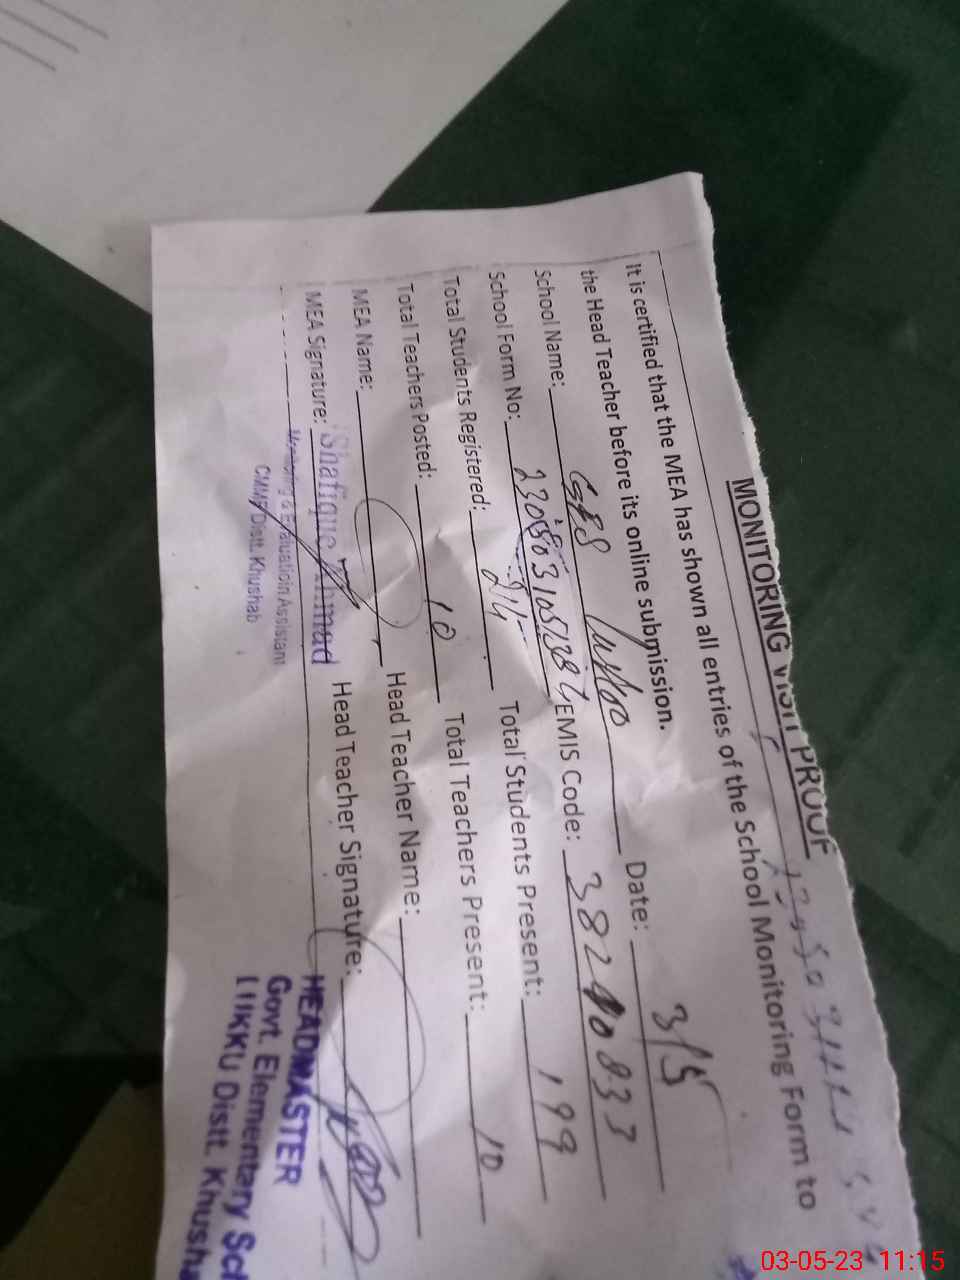 MONITORING VISIT PROOF
It is certified that the MEA has shown all entries of the School Monitoring Form to
the Head Teacher before its online submission.
School Name: Date: 3/5
School Form No: EMIS Code: 38240833
Total Students Registered: 214 Total Students Present: 199
Total Teachers Posted: 10 Total Teachers Present: 10
MEA Name: Head Teacher Name:
MEA Signature: Shafique Ahmad Head Teacher Signature:
Monitoring & Evaluatioin Assistant
CMMF Distt. Khushab
HEADMASTER
Govt. Elementary Sch
LUKKU Distt. Khusha
03-05-23 11:15